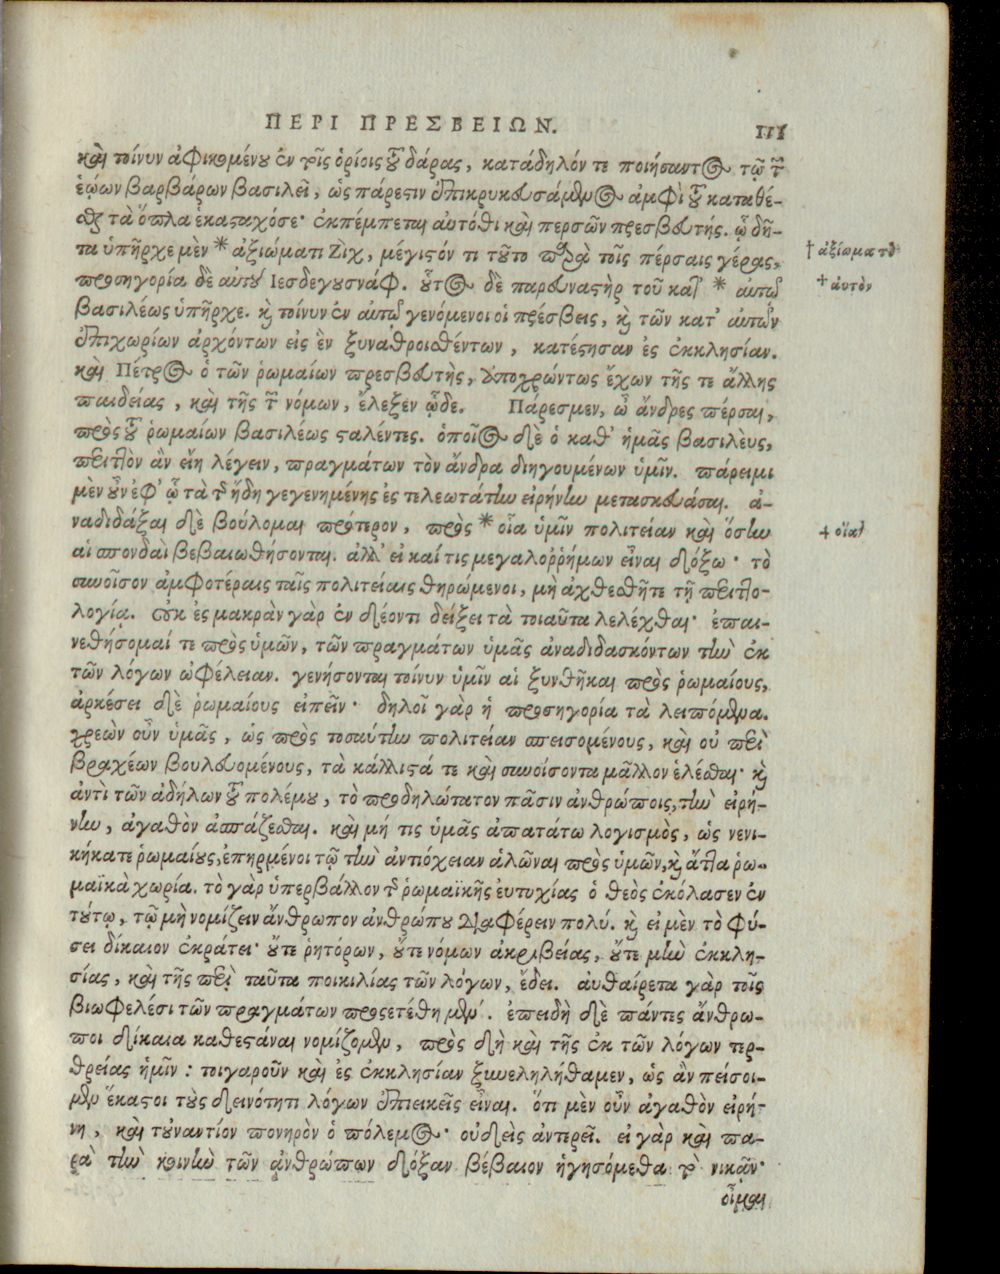 ΠΕΡΙ ΠΡΕΣΒΕΙΩΝ. 111
καὶ τοίνυν ἀφικομένου ἐν τοῖς ὁρίοις τοῦ δάρας, κατάδηλόν τε ποιήσαντος τῷ τῶν
ἑῴων βαρβάρων βασιλεῖ, ὡς πάρεστιν ἐπικηρυκευσάμενος ἀμφὶ τοῦ καταθέ-
σθαι τὰ ὅπλα ἑκατέρωσε· ἐκπέμπεται αὐτόθι καὶ περσῶν πρεσβευτής. ᾧ δῆ-
τα ὑπῆρχε μὲν * ἀξιώματι Ζὶχ, μέγιστόν τι τοῦτο παρὰ τοῖς πέρσαις γέρας, † ἀξίωμα τὸ
προσηγορία δὲ αὐτοῦ Ιεσδεγουσνάφ. οὗτος δὲ παρευναστὴρ τοῦ κατ' * αὐτῷ + αὐτὸν
βασιλέως ὑπῆρχε. καὶ τοίνυν ἐν αὐτῷ γενόμενοι οἱ πρέσβεις, καὶ τῶν κατ' αὐτῶν
ἐπιχωρίων ἀρχόντων εἰς ἓν ξυναθροισθέντων, κατέστησαν ἐς ἐκκλησίαν.
καὶ Πέτρος ὁ τῶν ῥωμαίων πρεσβευτὴς, ἀποχρώντως ἔχων τῆς τε ἄλλης
παιδείας, καὶ τῆς τῶν νόμων, ἔλεξεν ὧδε. Πάρεσμεν, ὦ ἄνδρες πέρσαι,
πρὸς τοῦ ῥωμαίων βασιλέως σταλέντες. ὁποῖος δὲ ὁ καθ' ἡμᾶς βασιλεὺς,
περιττὸν ἂν εἴη λέγειν, πραγμάτων τὸν ἄνδρα διηγουμένων ὑμῖν. πάρειμι
μὲν οὖν ἐφ' ᾧ τὰ τῆς ἤδη γεγενημένης ἐς τελεωτάτην εἰρήνην μετασκευάσαι. ἀ-
ναδιδάξαι δὲ βούλομαι πρότερον, πρὸς * οἷα ὑμῖν πολιτείαν καὶ ὅστω + οἵαν
αἱ σπονδαὶ βεβαιωθήσονται. ἀλλ' εἰ καί τις μεγαλορρήμων εἶναι δόξω· τὸ
συνοῖσον ἀμφοτέραις ταῖς πολιτείαις θηρώμενοι, μὴ ἀχθεσθῆτε τῇ περιττο-
λογίᾳ. οὐκ ἐς μακρὰν γὰρ ἐν δέοντι δείξει τὰ τοιαῦτα λελέχθαι· ἐπαι-
νεθήσομαί τε πρὸς ὑμῶν, τῶν πραγμάτων ὑμᾶς ἀναδιδασκόντων τὴν ἐκ
τῶν λόγων ὠφέλειαν. γενήσονται τοίνυν ὑμῖν αἱ ξυνθῆκαι πρὸς ῥωμαίους,
ἀρκέσει δὲ ῥωμαίους εἰπεῖν· δηλοῖ γὰρ ἡ προσηγορία τὰ λειπόμενα.
χρεὼν οὖν ὑμᾶς, ὡς πρὸς τοσαύτην πολιτείαν σπεισομένους, καὶ οὐ περὶ
βραχέων βουλευομένους, τὰ κάλλιστά τε καὶ συνοίσοντα μᾶλλον ἑλέσθαι· καὶ
ἀντὶ τῶν ἀδήλων τοῦ πολέμου, τὸ προδηλώτατον πᾶσιν ἀνθρώποις, τὴν εἰρή-
νην, ἀγαθὸν ἀσπάζεσθαι. καὶ μή τις ὑμᾶς ἀπατάτω λογισμὸς, ὡς νενι-
κήκατε ῥωμαίους, ἐπηρμένοι τῷ τὴν ἀντιόχειαν ἁλῶναι πρὸς ὑμῶν, καὶ ἄττα ῥω-
μαϊκὰ χωρία. τὸ γὰρ ὑπερβάλλον τῆς ῥωμαϊκῆς εὐτυχίας ὁ θεὸς ἐκόλασεν ἐν
τούτῳ, τῷ μὴ νομίζειν ἄνθρωπον ἀνθρώπου διαφέρειν πολύ. καὶ εἰ μὲν τὸ φύ-
σει δίκαιον ἐκράτει· οὔτε ῥητόρων, οὔτε νόμων ἀκριβείας, οὔτε μὴν ἐκκλη-
σίας, καὶ τῆς περὶ ταῦτα ποικιλίας τῶν λόγων, ἔδει. αὐθαίρετα γὰρ τοῖς
βιωφελέσι τῶν πραγμάτων προσετέθημεν. ἐπειδὴ δὲ πάντες ἄνθρω-
ποι δίκαια καθεστάναι νομίζομεν, πρὸς δὴ καὶ τῆς ἐκ τῶν λόγων τερ-
θρείας ἡμῖν: τοιγαροῦν καὶ ἐς ἐκκλησίαν ξυνεληλύθαμεν, ὡς ἂν πείσοι-
μεν ἕκαστοι τοὺς δεινότητι λόγων ἐπιεικεῖς εἶναι. ὅτι μὲν οὖν ἀγαθὸν εἰρή-
νη, καὶ τοὐναντίον πονηρὸν ὁ πόλεμος· οὐδεὶς ἀντερεῖ. εἰ γὰρ καὶ πα-
ρὰ τὴν κοινὴν τῶν ἀνθρώπων δόξαν βέβαιον ἡγησόμεθα τὸ νικᾷν·
οἶμαι